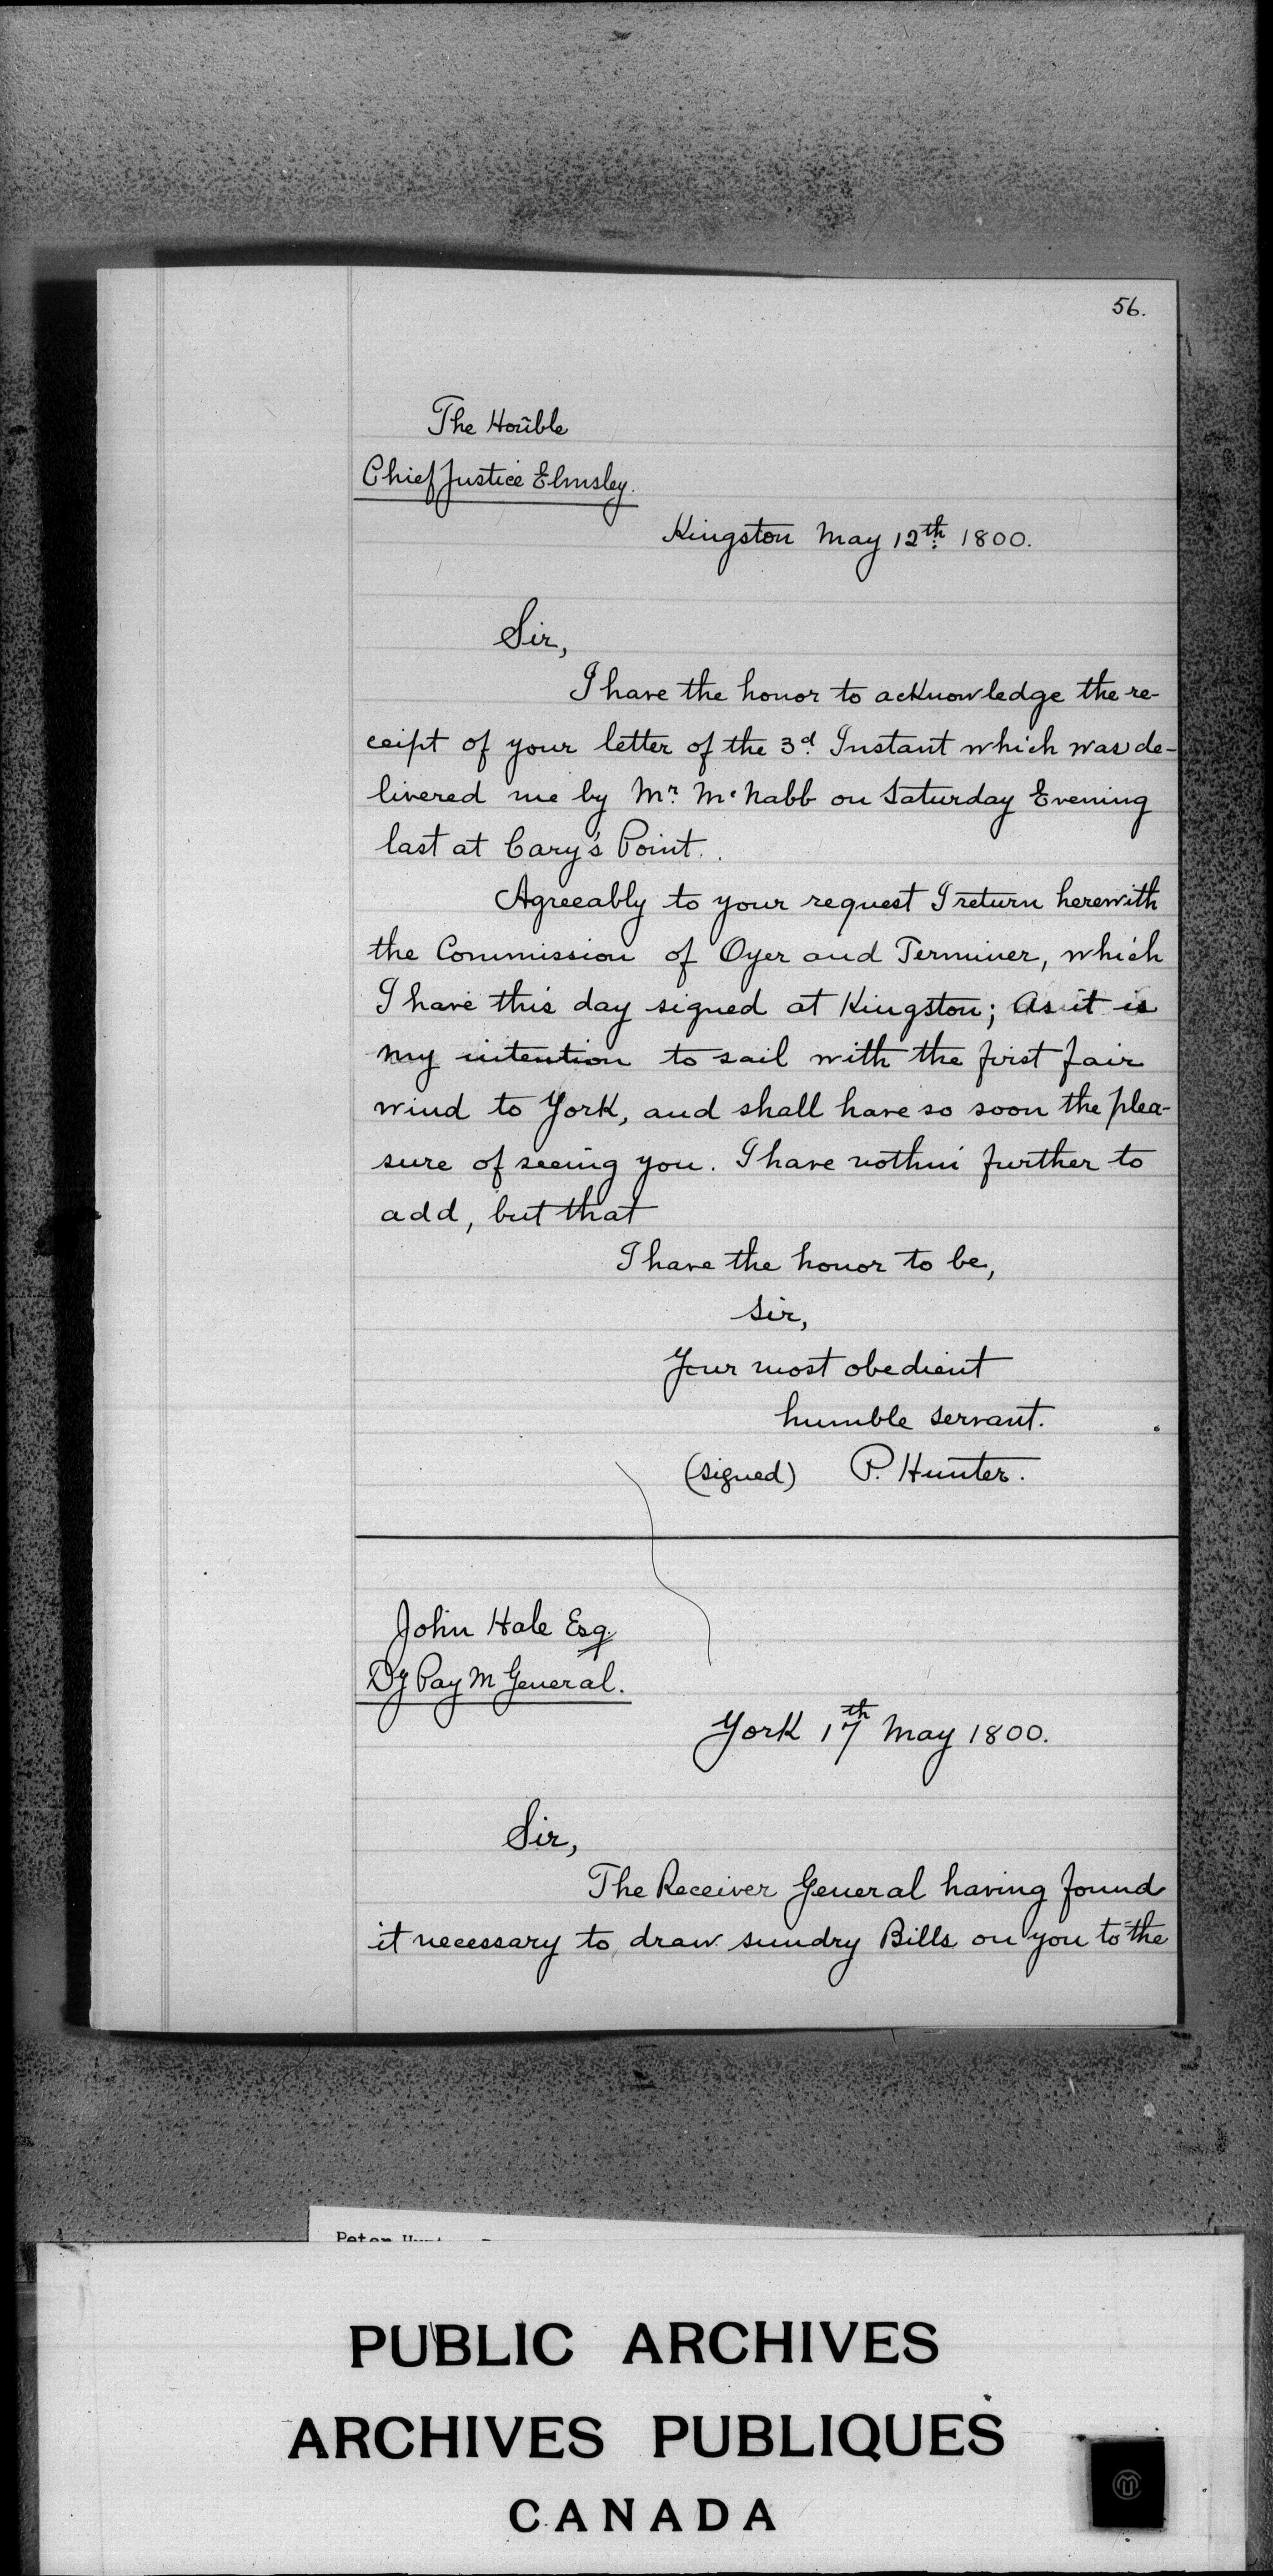 56.
The Hoñble
Chief Justice Elmsley.
Kingston May 12th 1800.
Sir,
I have the honor to acknowledge the re-
ceipt of your letter of the 3d. Instant which was de-
livered me by Mr. McNabb on Saturday Evening
last at Cary's Point.
Agreeably to your request I return herewith
the Commission of Oyer and Terminer, which
I have this day signed at Kingston; As it is
my intention to sail with the first fair
wind to York, and shall have so soon the plea-
sure of seeing you. I have nothin further to
add, but that
I have the honor to be,
Sir,
Your most obedient
humble servant.
(signed) P. Hunter.
John Hale Esq.
Dy Pay M General.
York 17th May 1800.
Sir,
The Receiver General having found
it necessary to draw sundry Bills on you to the
PUBLIC ARCHIVES
ARCHIVES PUBLIQUES
CANADA